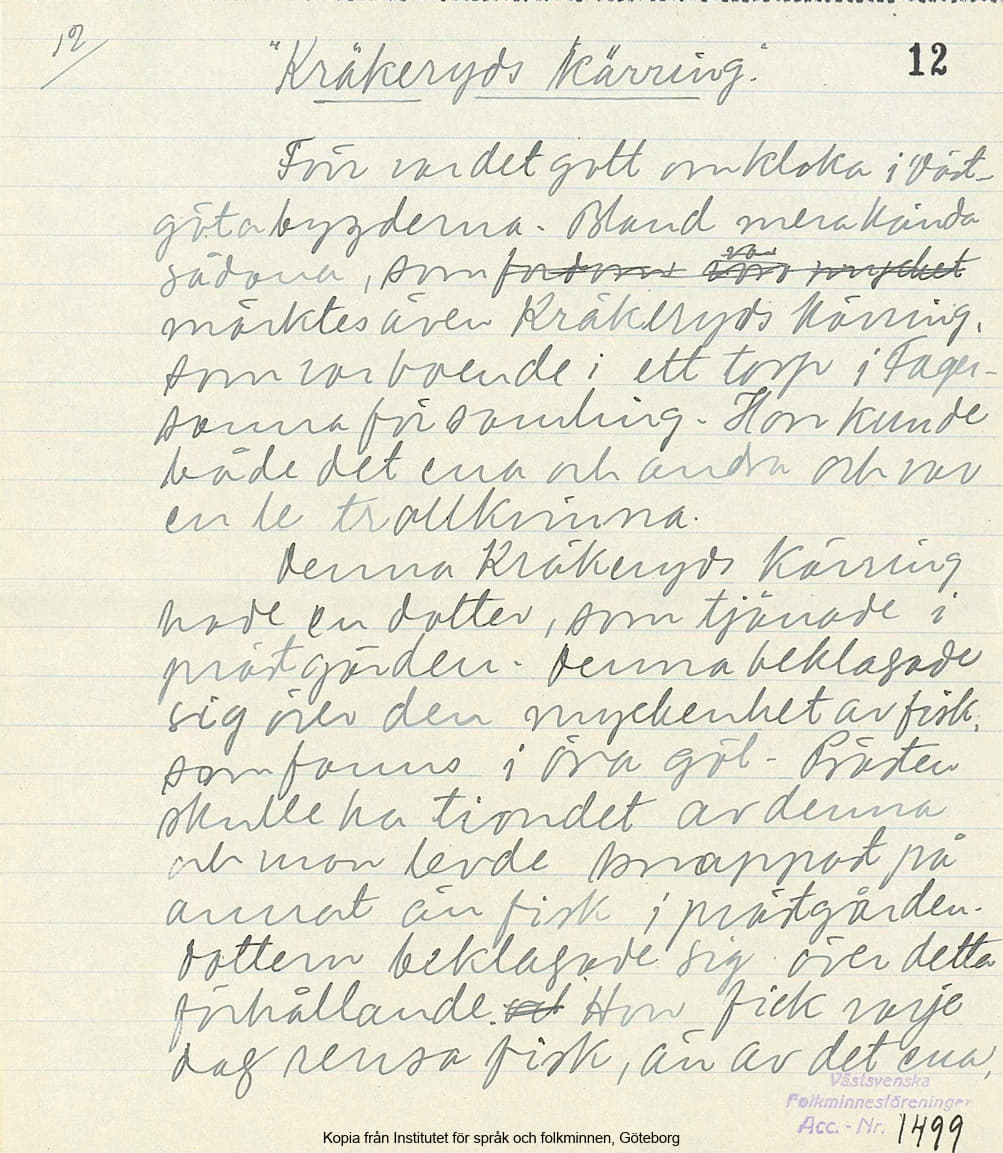 12/
"Kråkeryds kärring."
12
Förr var det gott om kloka i Väst-
götabygderna. Bland mera kända
sådana, som fordoms voro var mycket
märktes även Kråkeryds kärring,
som var boende i ett torp i Fager-
sanna församling. Hon kunde
både det ena och andra och var
en le trollkvinna.
Denna Kråkeryds kärring
hade en dotter, som tjänade i
prästgården. Denna beklagade
sig över den myckenhet av fisk,
som fanns i öra göl. Prästen
skulle ha tiondet av denna
och man levde knappast på
annat än fisk i prästgården.
Dottern beklagade sig över detta
förhållande. Hon fick varje
dag rensa fisk, än av det ena,
Västsvenska
Folkminnesföreningen
Acc. - Nr. 1499
Kopia från Institutet för språk och folkminnen, Göteborg